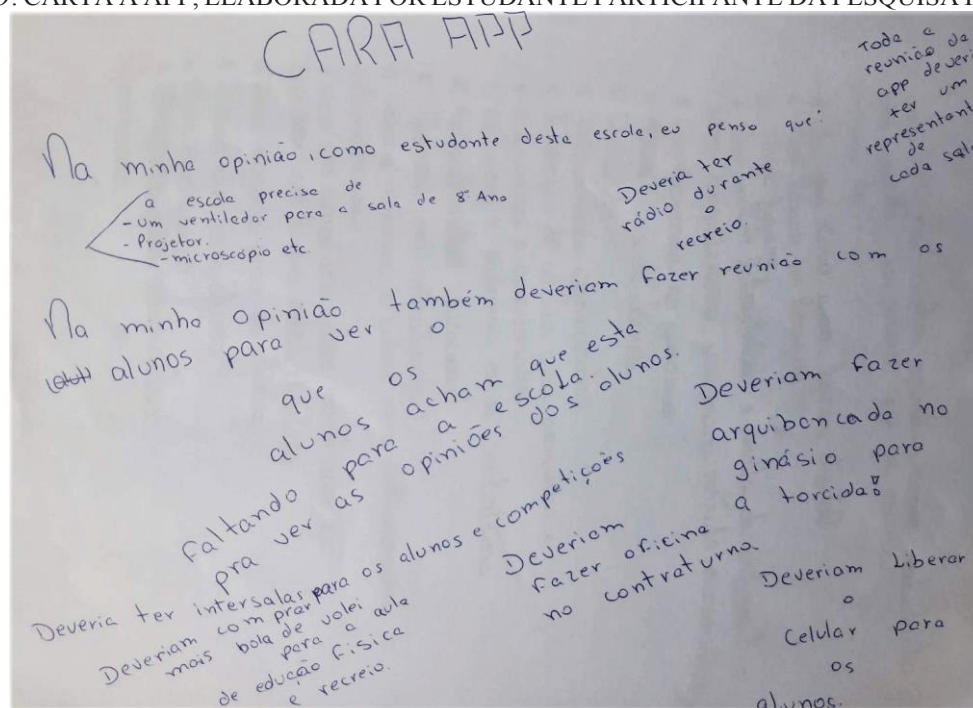 CARTA A APP, ELABORADA POR ESTUDANTE PARTICIPANTE DA PESQUISA
CARA APP
Toda a
reunião da
app deveri
ter um
representant
de
cada sala
Na minha opinião, como estudante desta escola, eu penso que:
a escola precisa de
- Um ventilador para a sala de 8º Ano
- Projetor.
- microscópio etc
Deveria ter
rádio durante
o
recreio.
Na minha opinião também deveriam fazer reunião com os
alunos para ver o
que os
alunos acham que esta
faltando para a escola.
pra ver as opiniões dos alunos.
Deveriam fazer
arquibancada no
ginásio para
a torcida!
Deveria ter intersalas para os alunos e competições
Deveriam comprar
mais bola de volei
para a aula
de edução física
e recreio.
Deveriam
fazer oficina
no contraturno
Deveriam Liberar
o
Celular para
os
alunos.